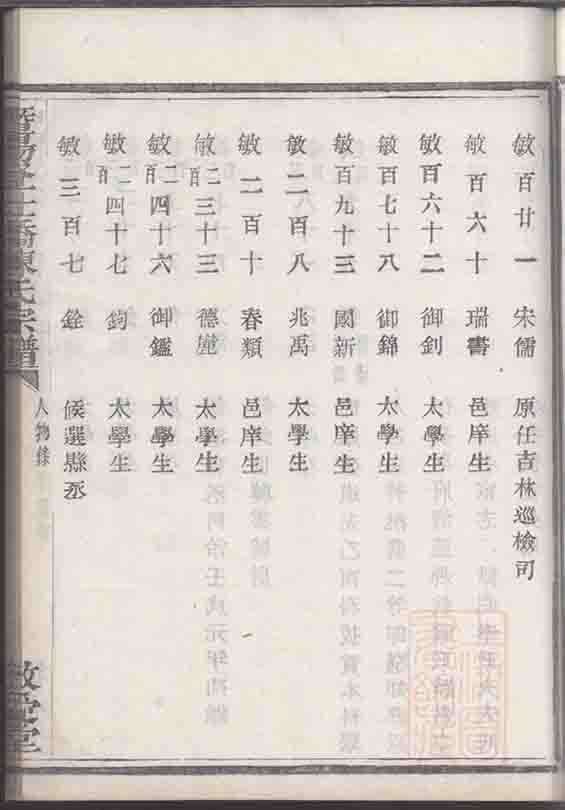 敏百廿一 宋儒 原任吉林巡檢司
敏百六十 瑞書 邑庠生
敏百六十二 御釗 太學生
敏百七十八 御錦 太學生
敏百九十三 國新 邑庠生
敏二百八 兆禹 太學生
敏二百十 春類 邑庠生
敏二百三十三 德 太學生
敏二百四十六 御鑑 太學生
敏二百四十七 鈞 太學生
敏三百七 銓 候選縣丞
陳氏宗譜 人物錄 敏堂